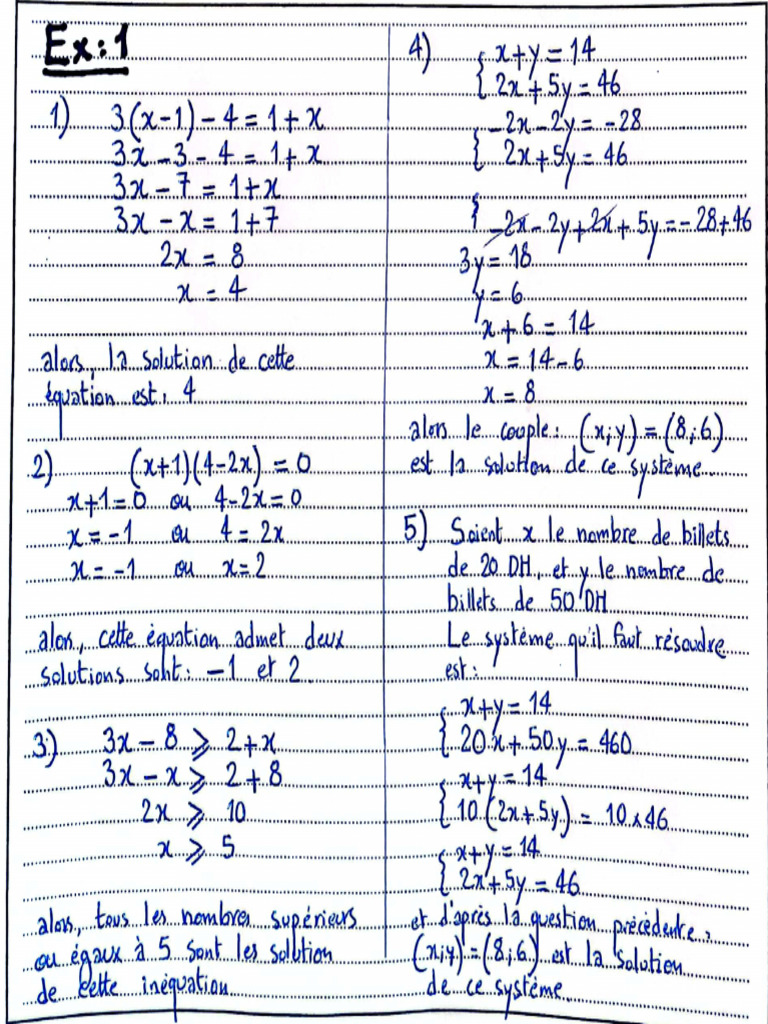 Ex:1
1) 3(x-1)-4=1+x
3x-3-4=1+x
3x-7=1+x
3x-x=1+7
2x=8
x=4
alors, la solution de cette
équation est: 4
2) (x+1)(4-2x)=0
x+1=0 ou 4-2x=0
x=-1 ou 4=2x
x=-1 ou x=2
alors, cette équation admet deux
solutions sont: -1 et 2.
3) 3x-8 ⩾ 2+x
3x-x ⩾ 2+8
2x ⩾ 10
x ⩾ 5
alors, tous les nombres supérieurs
ou égaux à 5 sont les solution
de cette inéquation
4) { x+y=14
2x+5y=46
{ -2x-2y=-28
2x+5y=46
{ -2x-2y+2x+5y=-28+46
3y=18
y=6
x+6=14
x=14-6
x=8
alors le couple: (x;y)=(8;6)
est la solution de ce système
5) Soient x le nombre de billets
de 20 DH, et y le nombre de
billets de 50 DH
Le système qu'il faut résoudre
est:
{ x+y=14
20x+50y=460
{ x+y=14
10(2x+5y)=10×46
{ x+y=14
2x+5y=46
et d'après la question précédente,
(x;y)=(8;6) est la solution
de ce système.